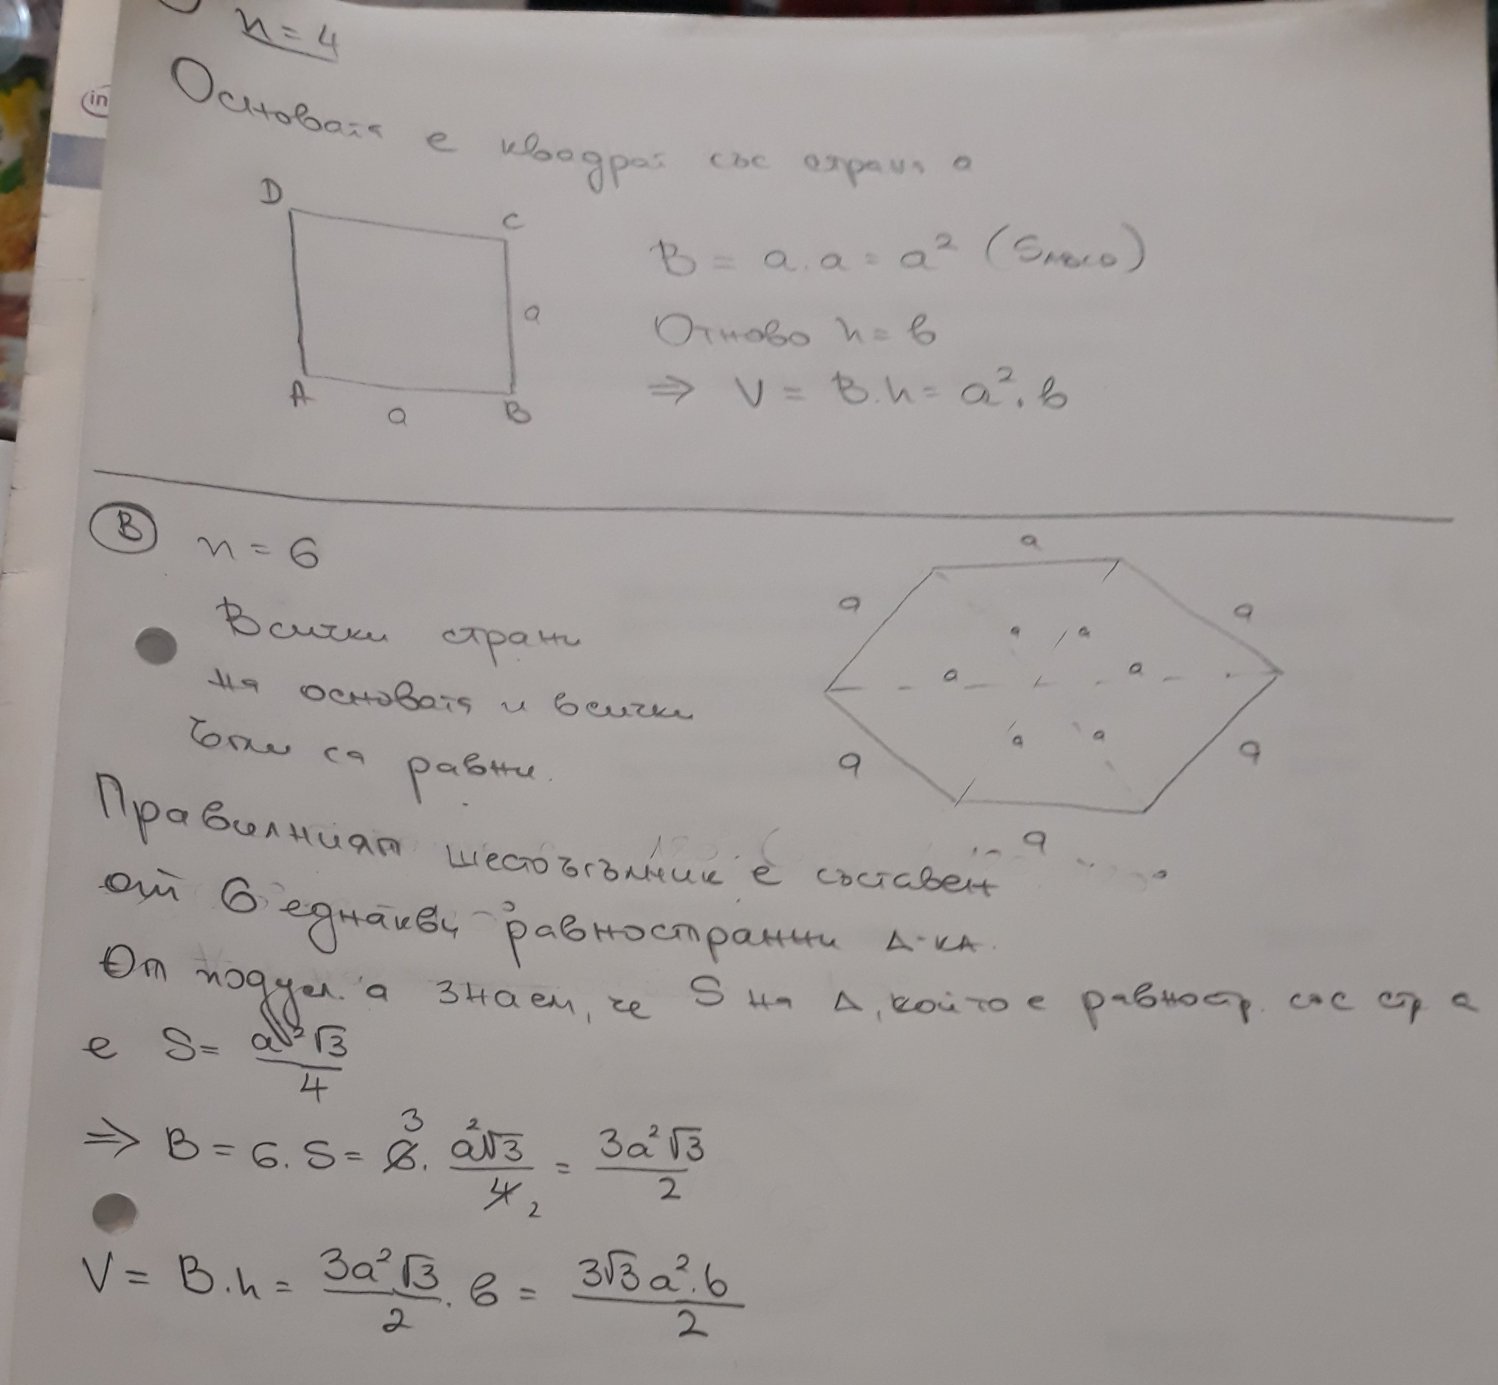 in
n = 4
Основата е квадрат със страна a
D
C
a
A
a
B
B = a.a = a² (Sлице)
Отново h = b
⇒ V = B.h = a².b
В n = 6
Всички страни
на основата и всички
ъгли са равни.
a
a
a
a
a
a
a
a
a
a
a
a
Правилният шестоъгълник е съставен
от 6 еднакви равностранни Δ-ка.
От подусл. а знаем, че S на Δ, който е равностр. със стр a
е S = a²√3/4
⇒ B = 6.S = 6³. a²√3/4₂ = 3a²√3/2
V = B.h = 3a²√3/2 . b = 3√3a².b/2